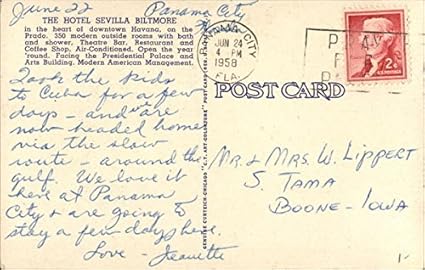 June 22 Panama City
THE HOTEL SEVILLA BILTMORE
in the heart of downtown Havana, on the
Prado. 350 modern outside rooms with bath
and shower, Theatre Bar, Restaurant and
Coffee Shop, Air-Conditioned. Open the year
round. Facing the Presidential Palace and
Arts Building. Modern American Management.
Took the kids
to Cuba for a few
days - and we are
now headed home
via the slow
route - around the
gulf. We love it
here at Panama
City & are going to
stay a few days here.
Love - Jeanette
GENUINE CURTEICH-CHICAGO "C.T. ART-COLORTONE" POST CARD
CITY
JUN 24
4 PM
1958
FLA.
2¢
U.S. POSTAGE
POST CARD
Mr. & Mrs. W. Lippert
S. Tama
Boone - Iowa
1-